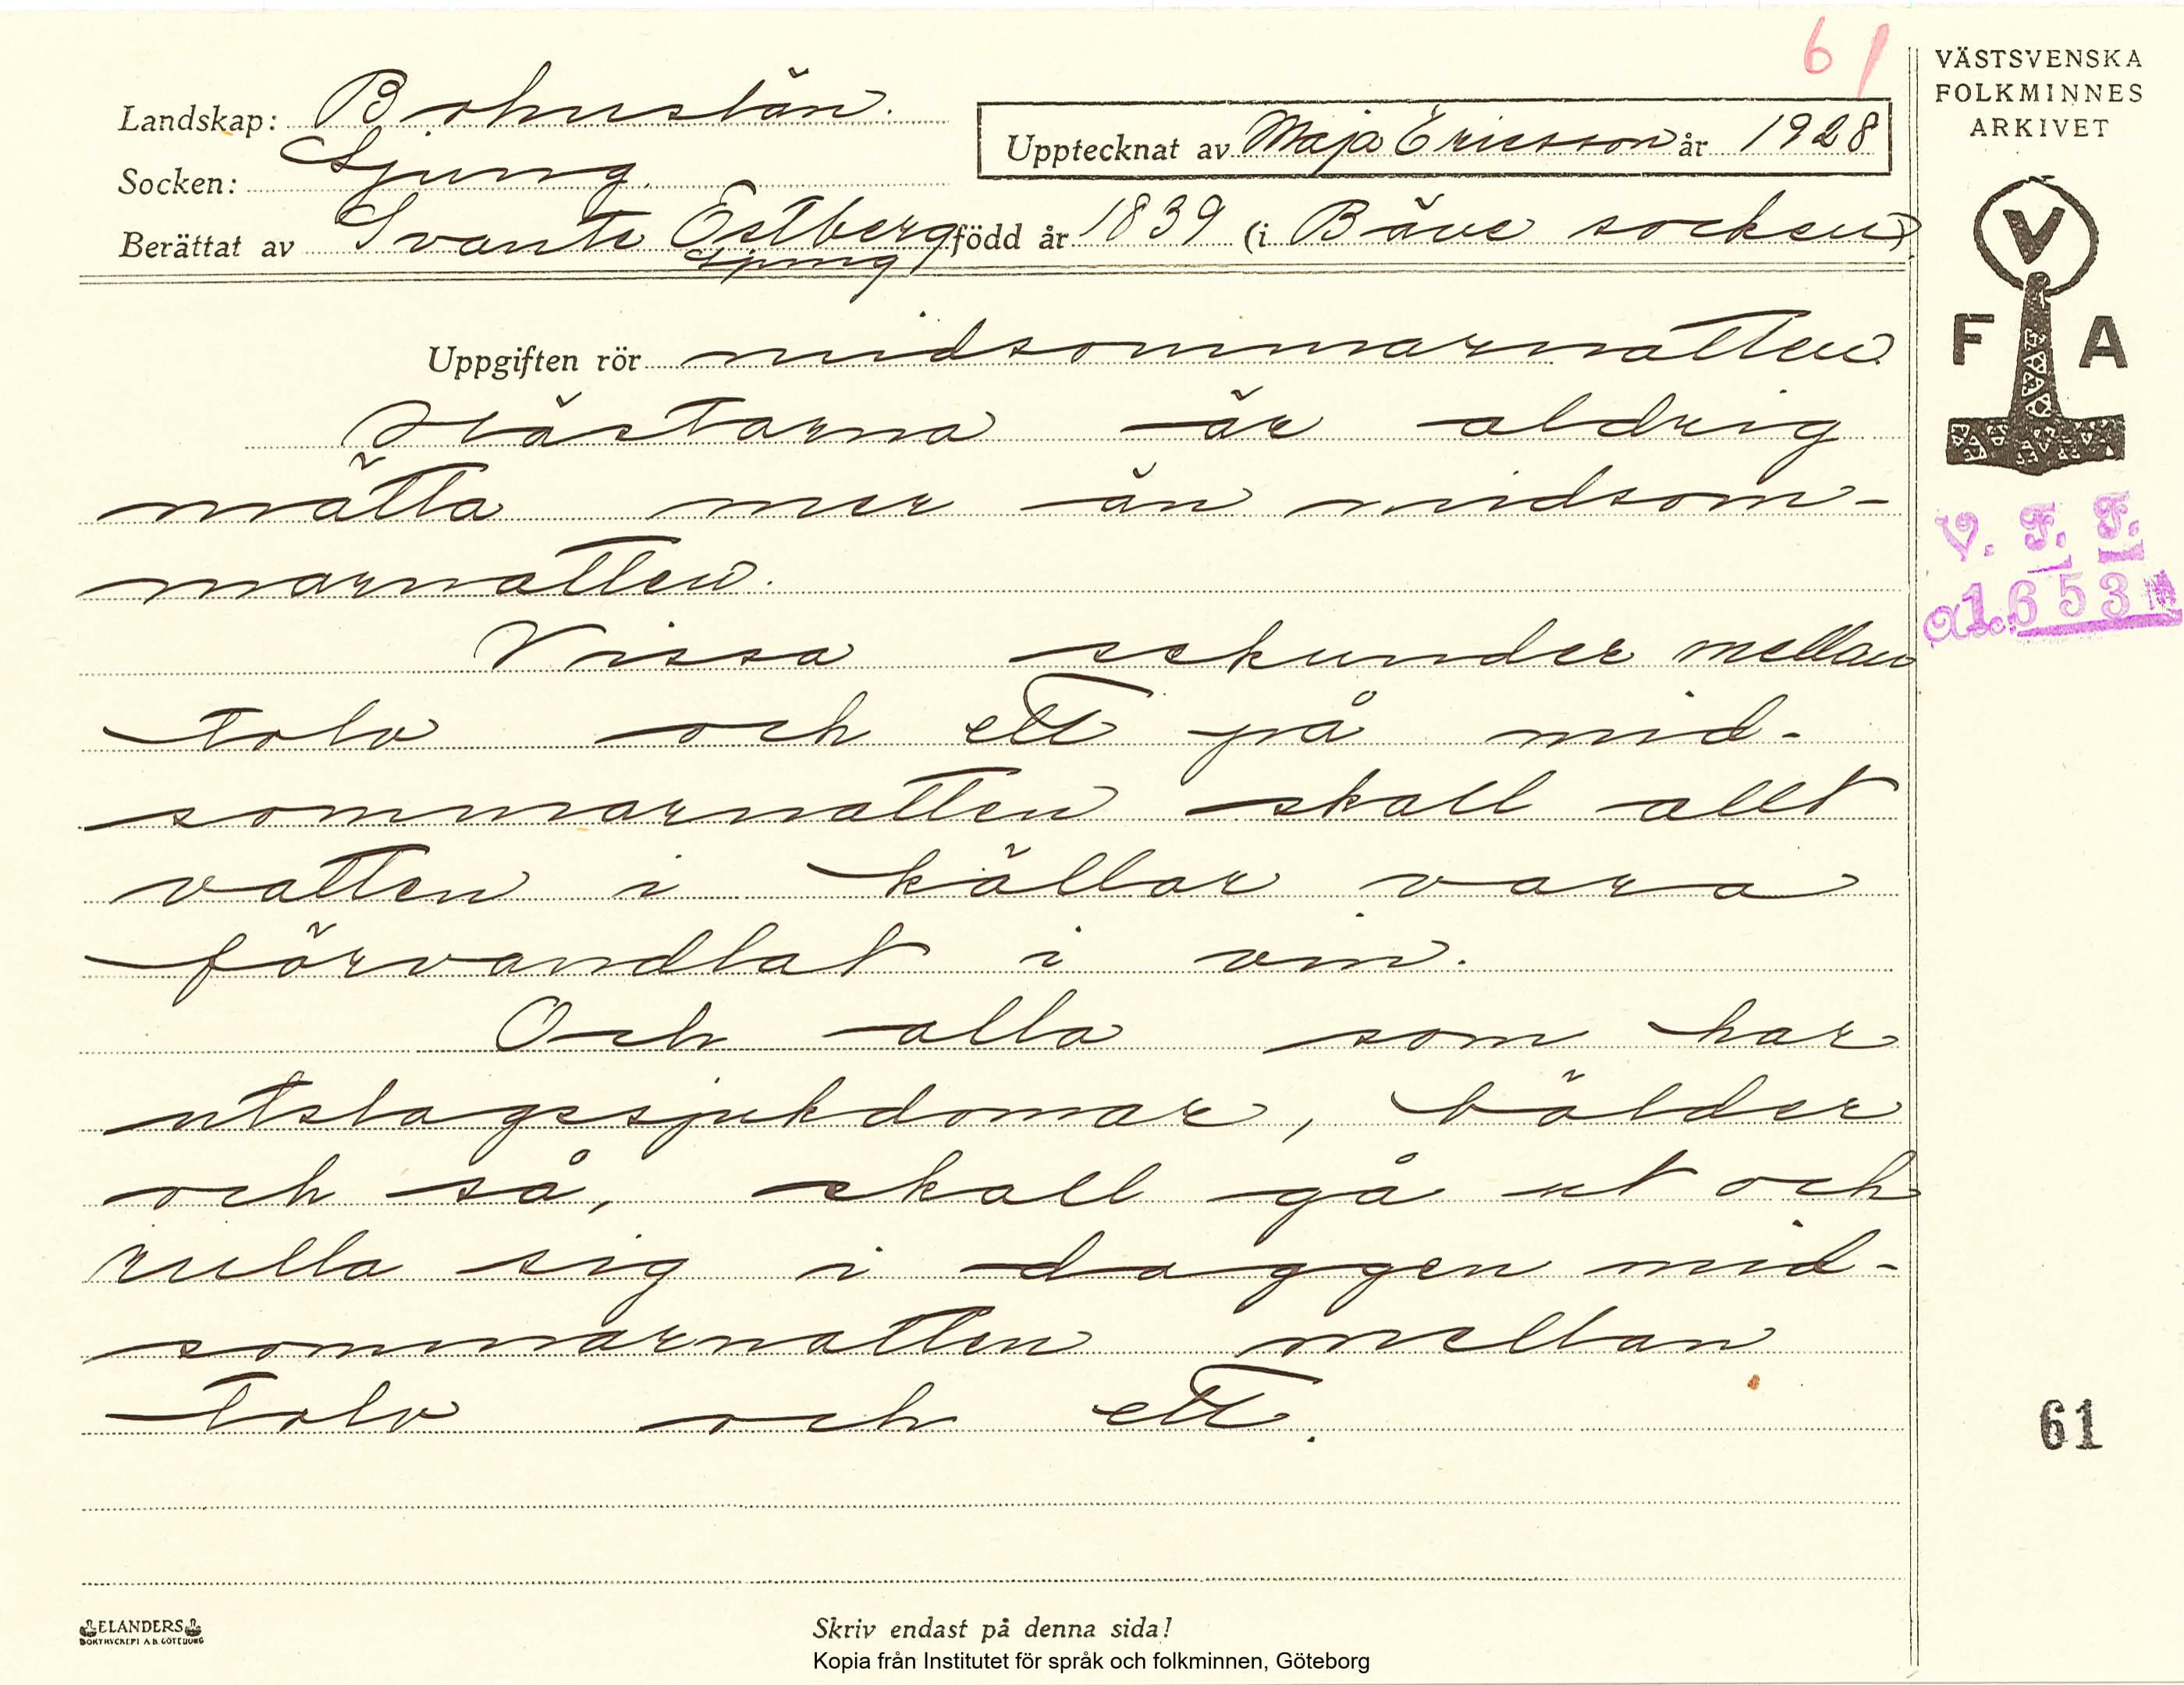 61
VÄSTSVENSKA
FOLKMINNES
ARKIVET
Landskap: Bohuslän.
Upptecknat av Maja Ericsson år 1928
Socken: Ljung.
Berättat av Svante Östberg född år 1839 (i Bäve socken)
Ljung
V
F A
Uppgiften rör midsommarnatten
Hästarna är aldrig
mätta mer än midsom-
marnatten.
V. F. F.
1653
Vissa sekunder mellan
tolv och ett på mid-
sommarnatten skall allt
vatten i källor vara
förvandlat i vin.
Och alla som har
utslagssjukdomar, bölder
och så, skall gå ut och
rulla sig i daggen mid-
sommarnatten mellan
tolv och ett.
61
ELANDERS
BOKTRYCKERI A.B. GÖTEBORG
Skriv endast på denna sida!
Kopia från Institutet för språk och folkminnen, Göteborg